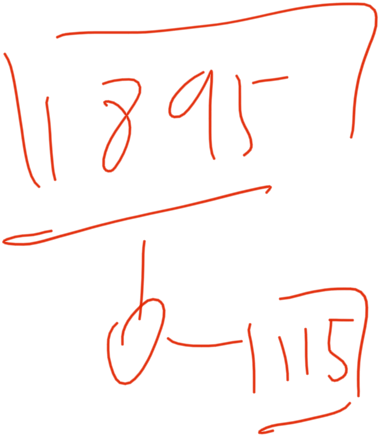 1895
115